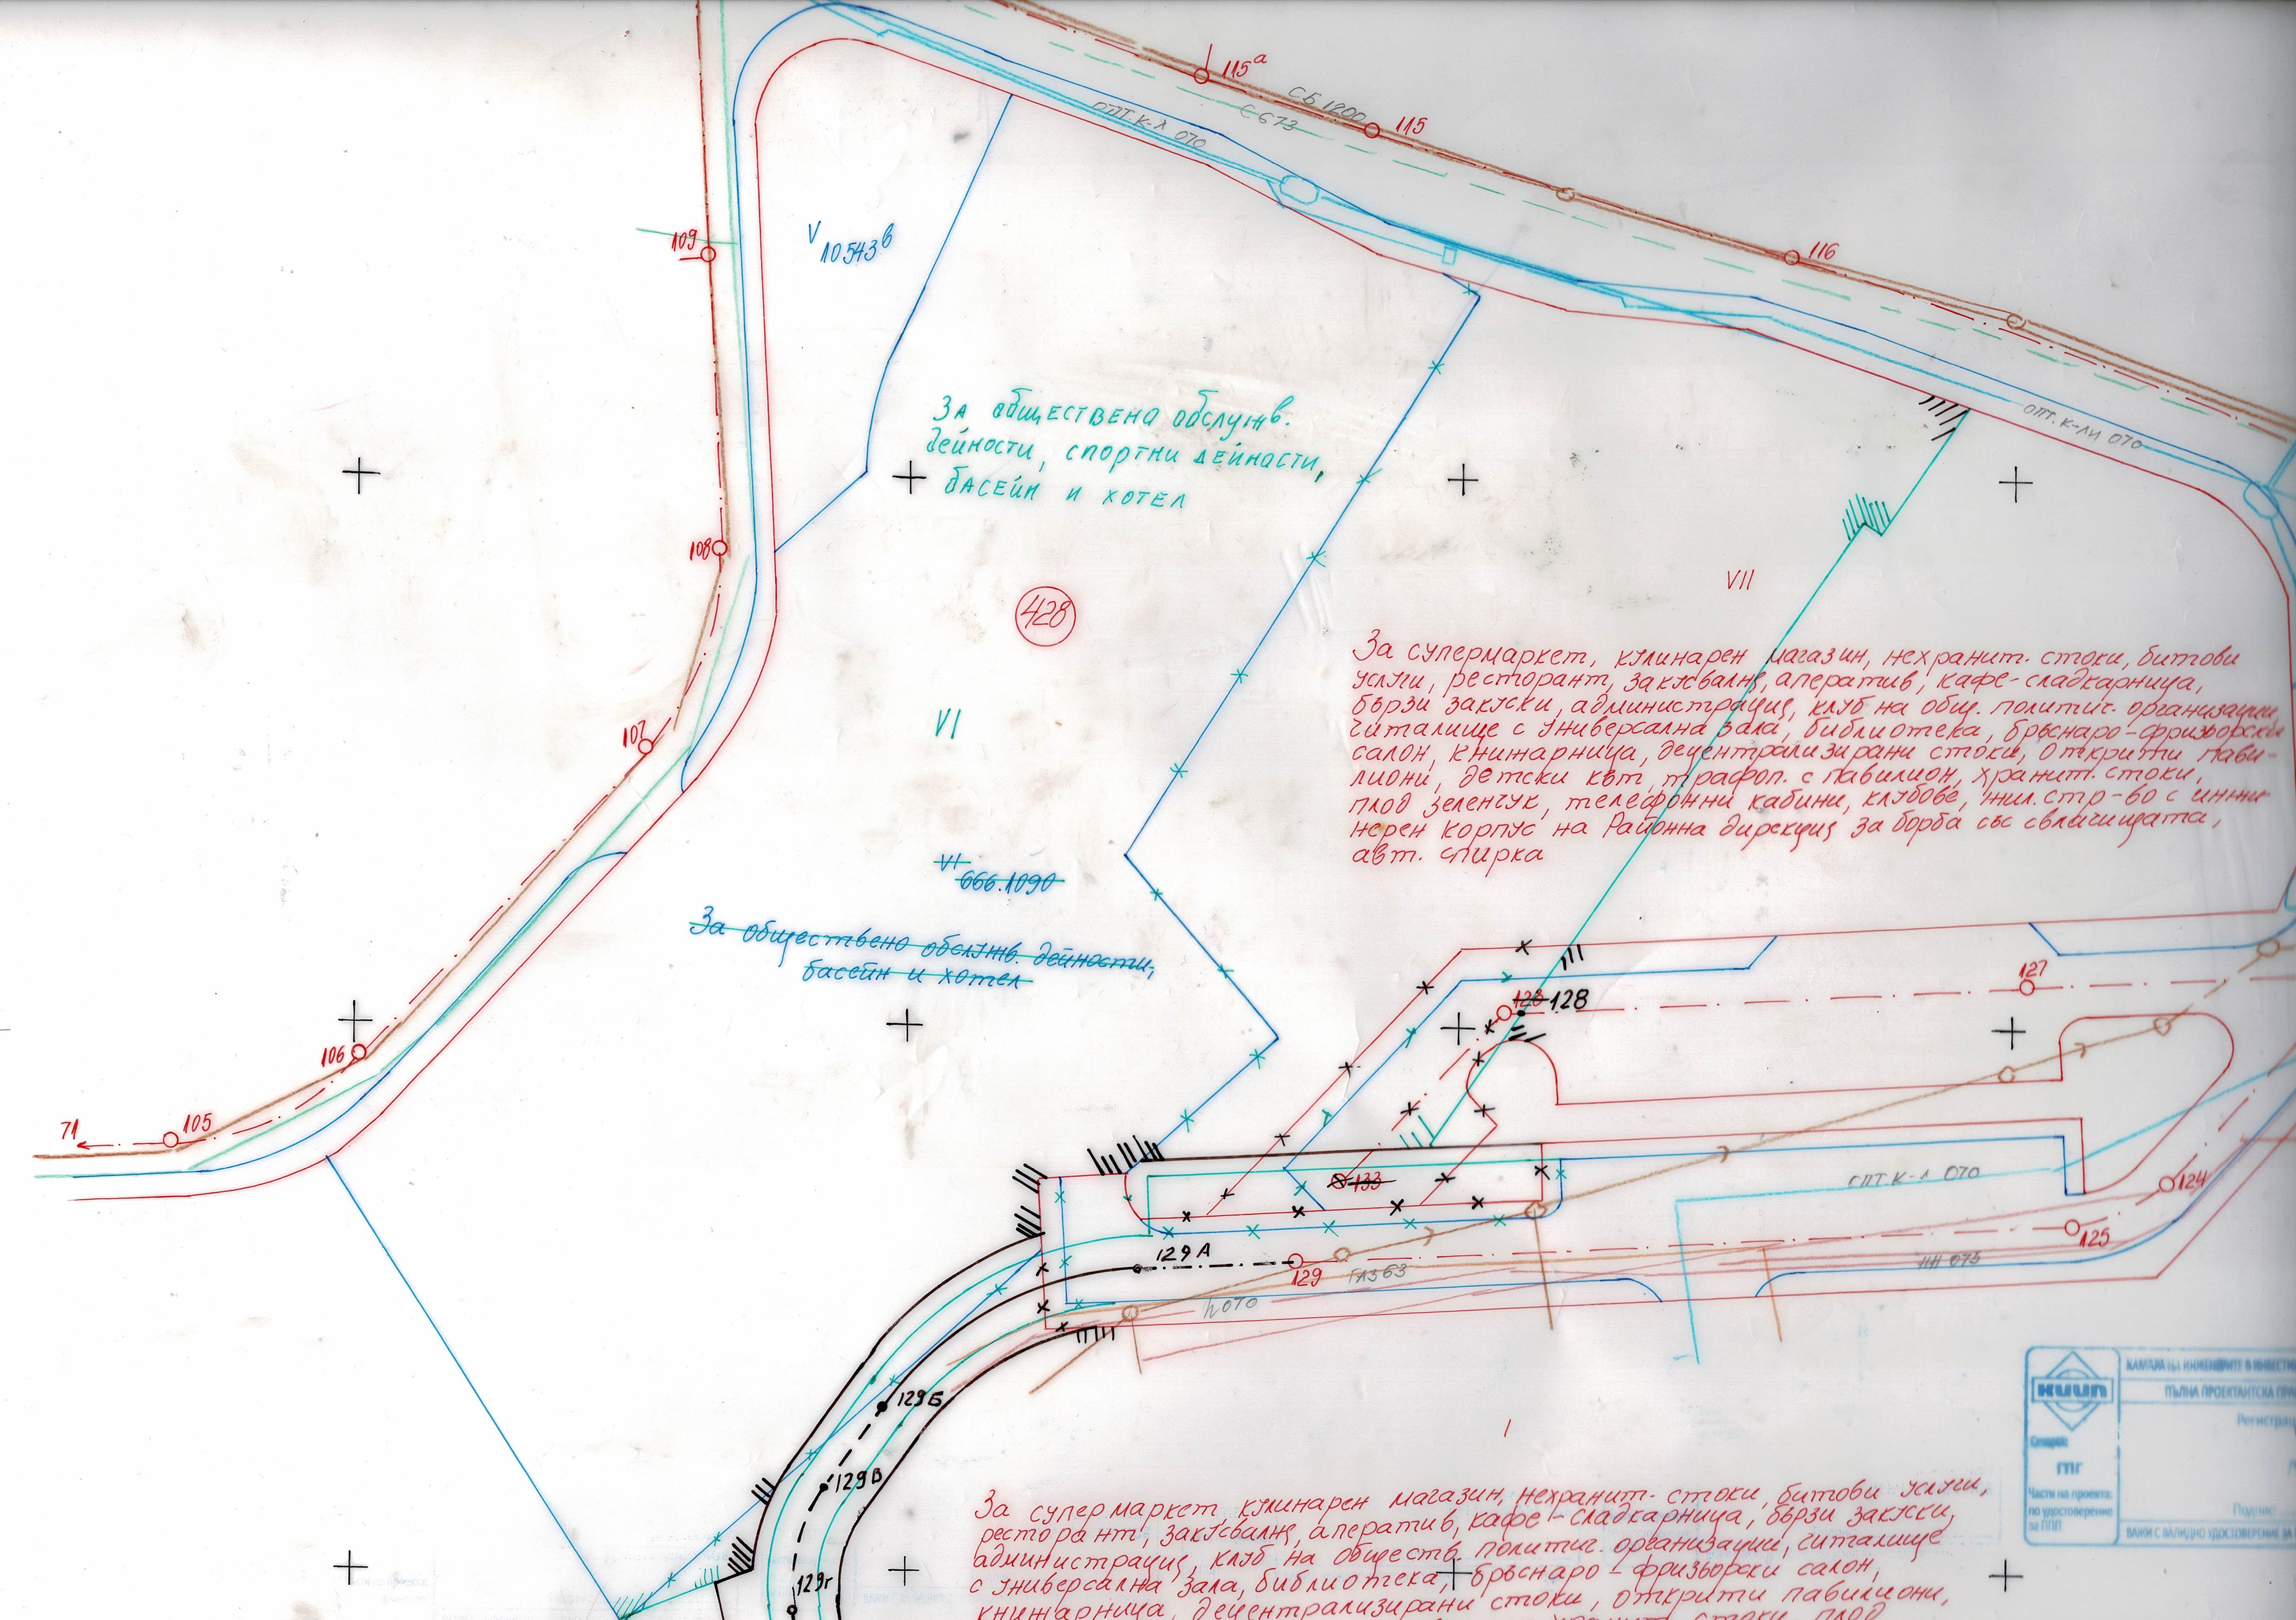 115а
СБ 1200
С 673
115
ОПТ.К-Л 070
116
109
V
10543в
За обществена обслужв.
дейности, спортни дейности,
басейн и хотел
опт. к-ли 070
108
428
VII
За супермаркет, кулинарен магазин, нехранит. стоки, битови
услуги, ресторант, закусвалня, аператив, кафе-сладкарница,
бързи закуски, администрация, клуб на общ. политич. организации,
читалище с универсална зала, библиотека, бръснаро-фризьорски
салон, книжарница, децентрализирани стоки, открити пави-
лиони, детски кът, трафоп. с павилион, хранит. стоки,
плод зеленчук, телефонни кабини, клубове, жил. стр-во с инже
нерен корпус на Районна дирекция за борба със свлачищата,
авт. спирка
VI
107
VI
666.1090
За обществено обслужв. дейности,
басейн и хотел
127
128 128
106
105
71
133
ОПТ К-Л 070
124
125
129 А
129
ГАЗ 63
129Б
129В
129г
I
За супермаркет, кулинарен магазин, нехранит. стоки, битови услуги,
ресторант, закусвалня, аператив, кафе-сладкарница, бързи закуски,
администрация, клуб на обществ. политич. организации, читалище
с универсална зала, библиотека, бръснаро-фризьорски салон,
книжарница, децентрализирани стоки, открити павилиони,
КИИП
КАМАРА НА ИНЖЕНЕРИТЕ В
ПЪЛНА ПРОЕКТАНТСКА
Секция:
ПГ
Части на проекта:
по удостоверение
за ППП
Подпис
ВАЖИ С ВАЛИДНО УДОСТОВЕРЕНИЕ ЗА